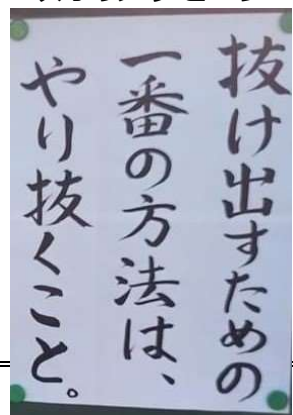 抜け出すための
一番の方法は、
やり抜くこと。